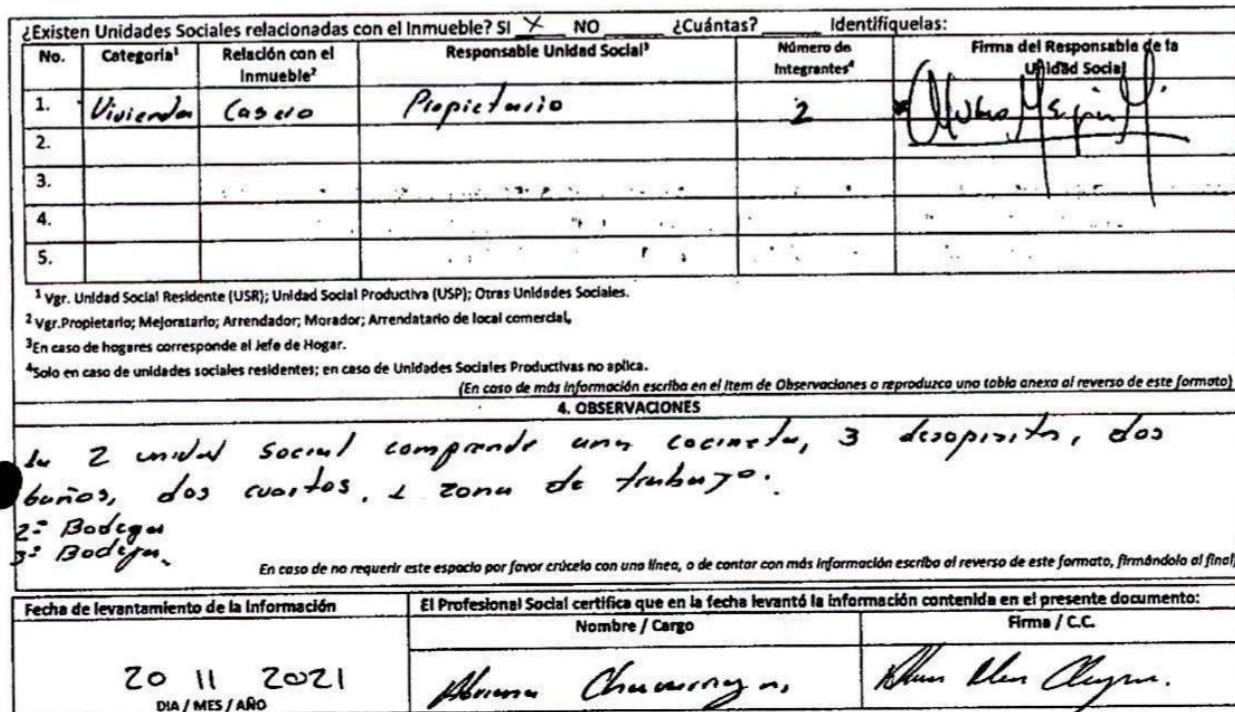 ¿Existen Unidades Sociales relacionadas con el Inmueble? SI X NO ____ ¿Cuántas? ____ Identifíquelas:
No. Categoría¹ Relación con el Inmueble² Responsable Unidad Social³ Número de Integrantes⁴ Firma del Responsable de la Unidad Social
1. Vivienda Casero Propietario 2
2.
3.
4.
5.
¹ Vgr. Unidad Social Residente (USR); Unidad Social Productiva (USP); Otras Unidades Sociales.
² Vgr.Propietario; Mejoratario; Arrendador; Morador; Arrendatario de local comercial,
³En caso de hogares corresponde al Jefe de Hogar.
⁴Solo en caso de unidades sociales residentes; en caso de Unidades Sociales Productivas no aplica.
(En caso de más información escriba en el ítem de Observaciones o reproduzca una tabla anexa al reverso de este formato)
4. OBSERVACIONES
2 unidad social comprende una cocineta, 3 dos
baños, dos cuartos, 1 zona de trabajo.
2= Bodega
3= Bodega.
En caso de no requerir este espacio por favor crúcelo con una línea, o de contar con más información escriba al reverso de este formato, firmándolo al final
Fecha de levantamiento de la Información
El Profesional Social certifica que en la fecha levantó la información contenida en el presente documento:
Nombre / Cargo Firma / C.C.
20 11 2021
DIA / MES / AÑO